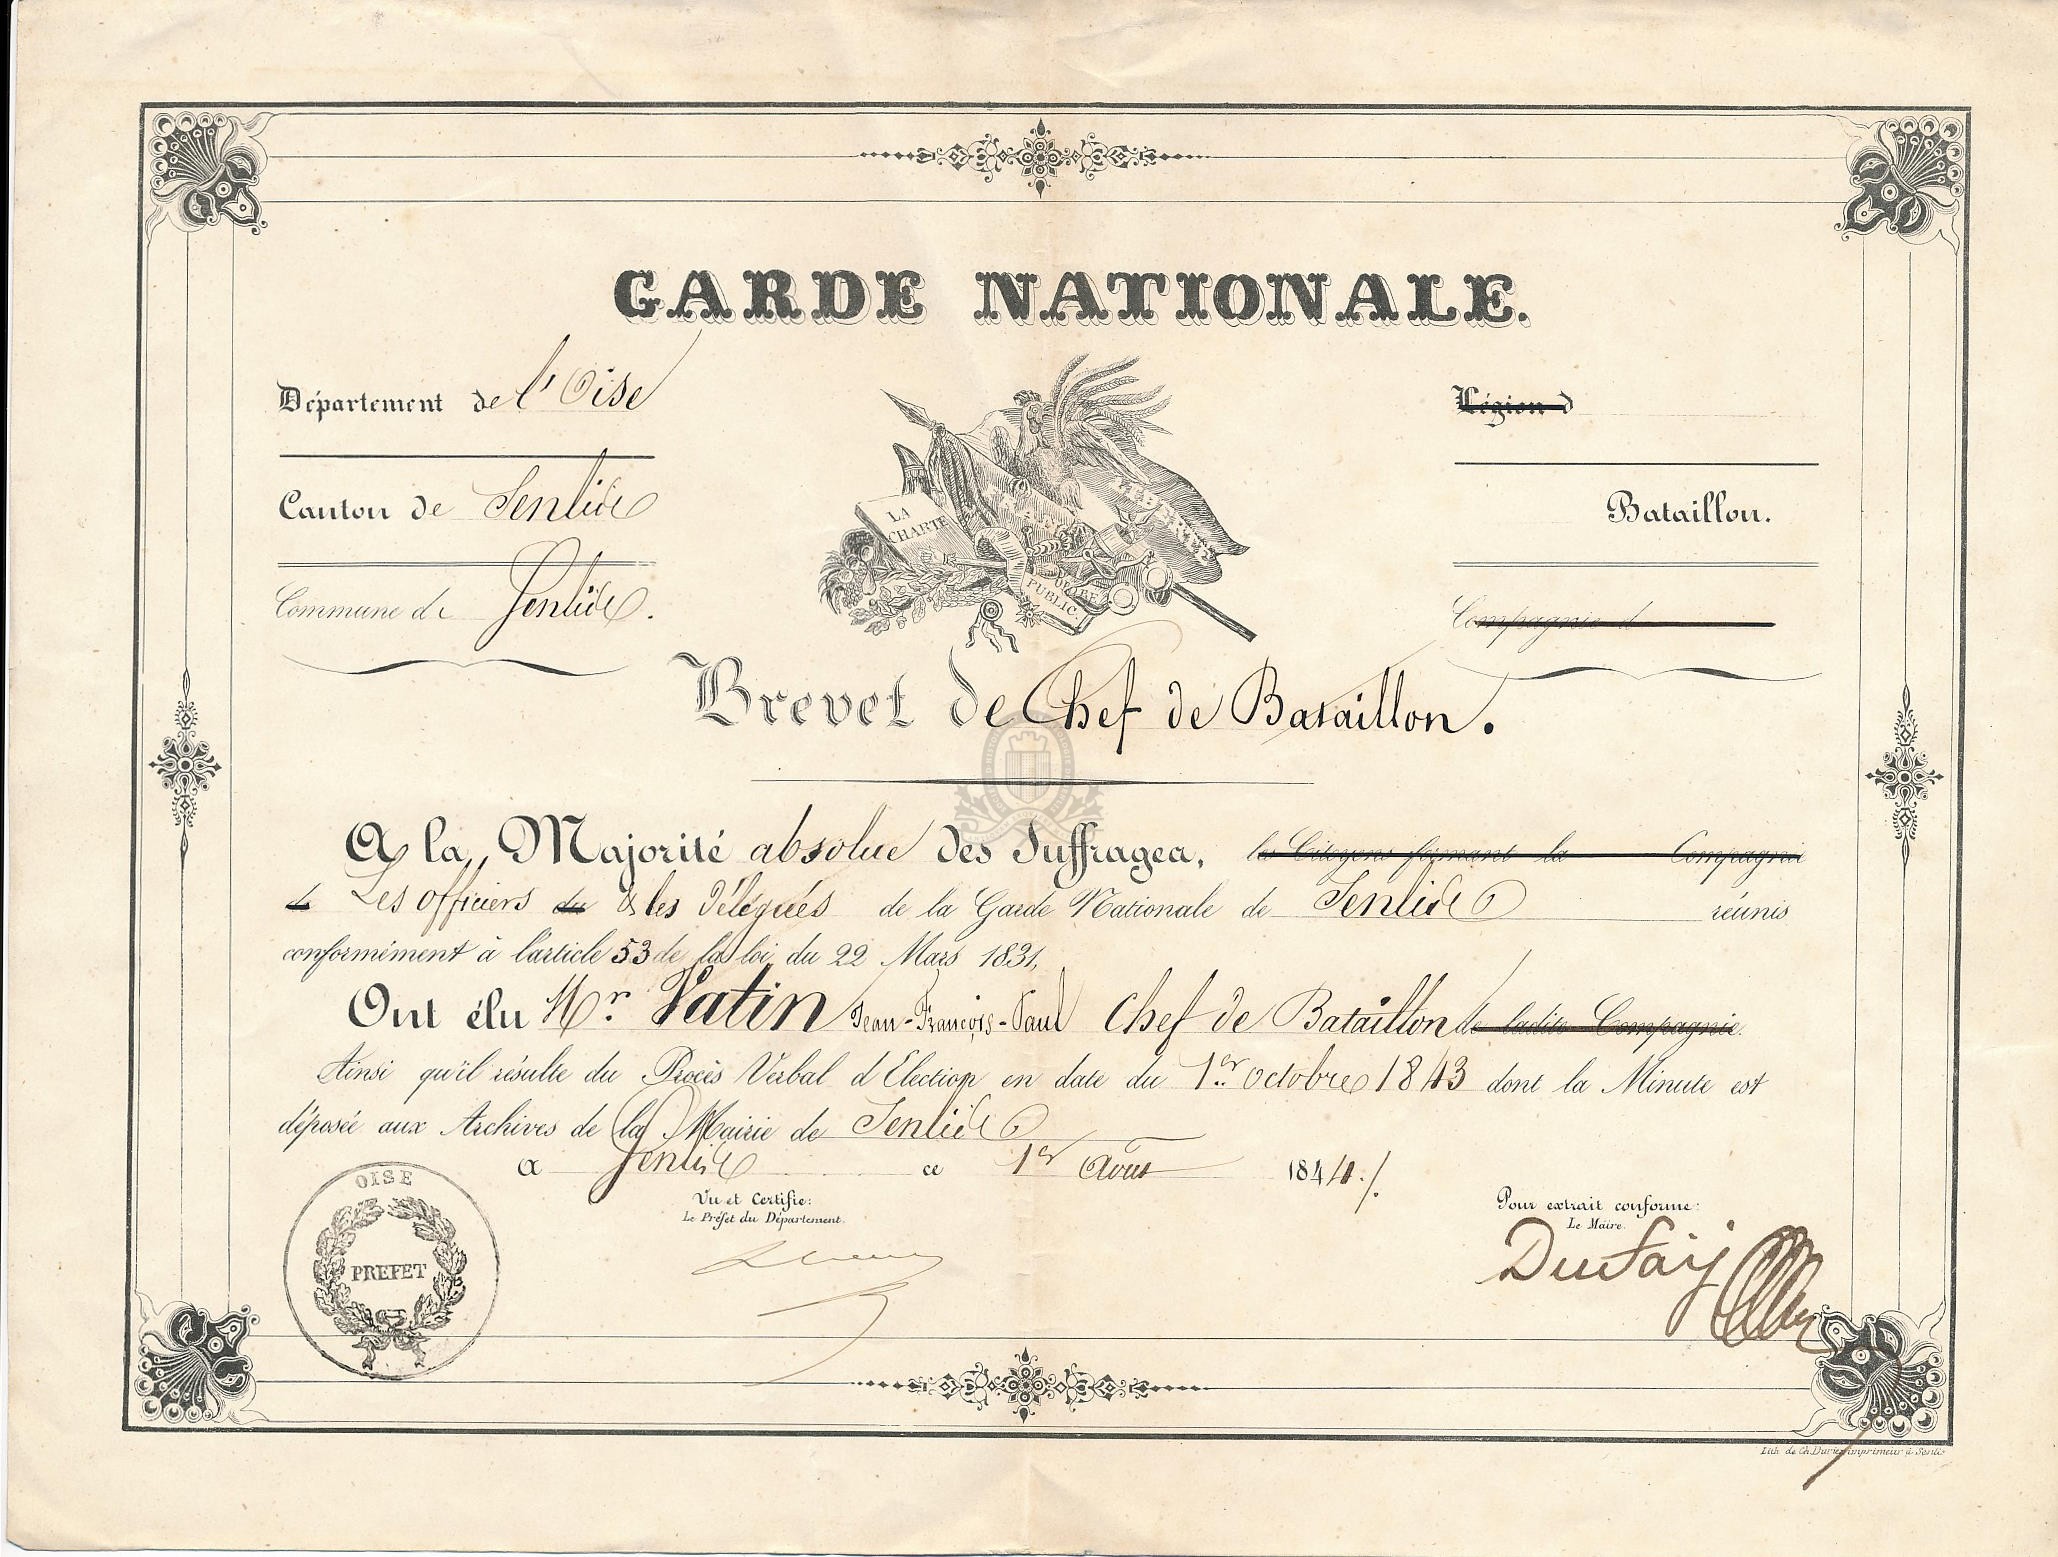 GARDE NATIONALE.
Département de l'Oise
Légion d
Canton de Senlis
Bataillon.
Commune de Senlis.
Compagnie d
LA CHARTE
ORDRE PUBLIC
Brevet de Chef de Bataillon.
A la Majorité absolue des Suffrages, les Citoyens formant la Compagnie
d Les officiers du & les Délégués de la Garde Nationale de Senlis réunis
conformément à l'article 53 de la loi du 22 Mars 1831,
Ont élu Mr. Vatin Jean-François-Paul Chef de Bataillon de ladite Compagnie.
Ainsi qu'il résulte du Procès Verbal d'Election en date du 1er. octobre 1843 dont la Minute est
déposée aux Archives de la Mairie de Senlis
A Senlis ce 1er Août 1844./.
Vu et Certifie:
Le Préfet du Département.
Pour extrait conforme:
Le Maire.
Dufay
OISE
PREFET
Lith. de Ch. Duriez imprimeur à Senlis